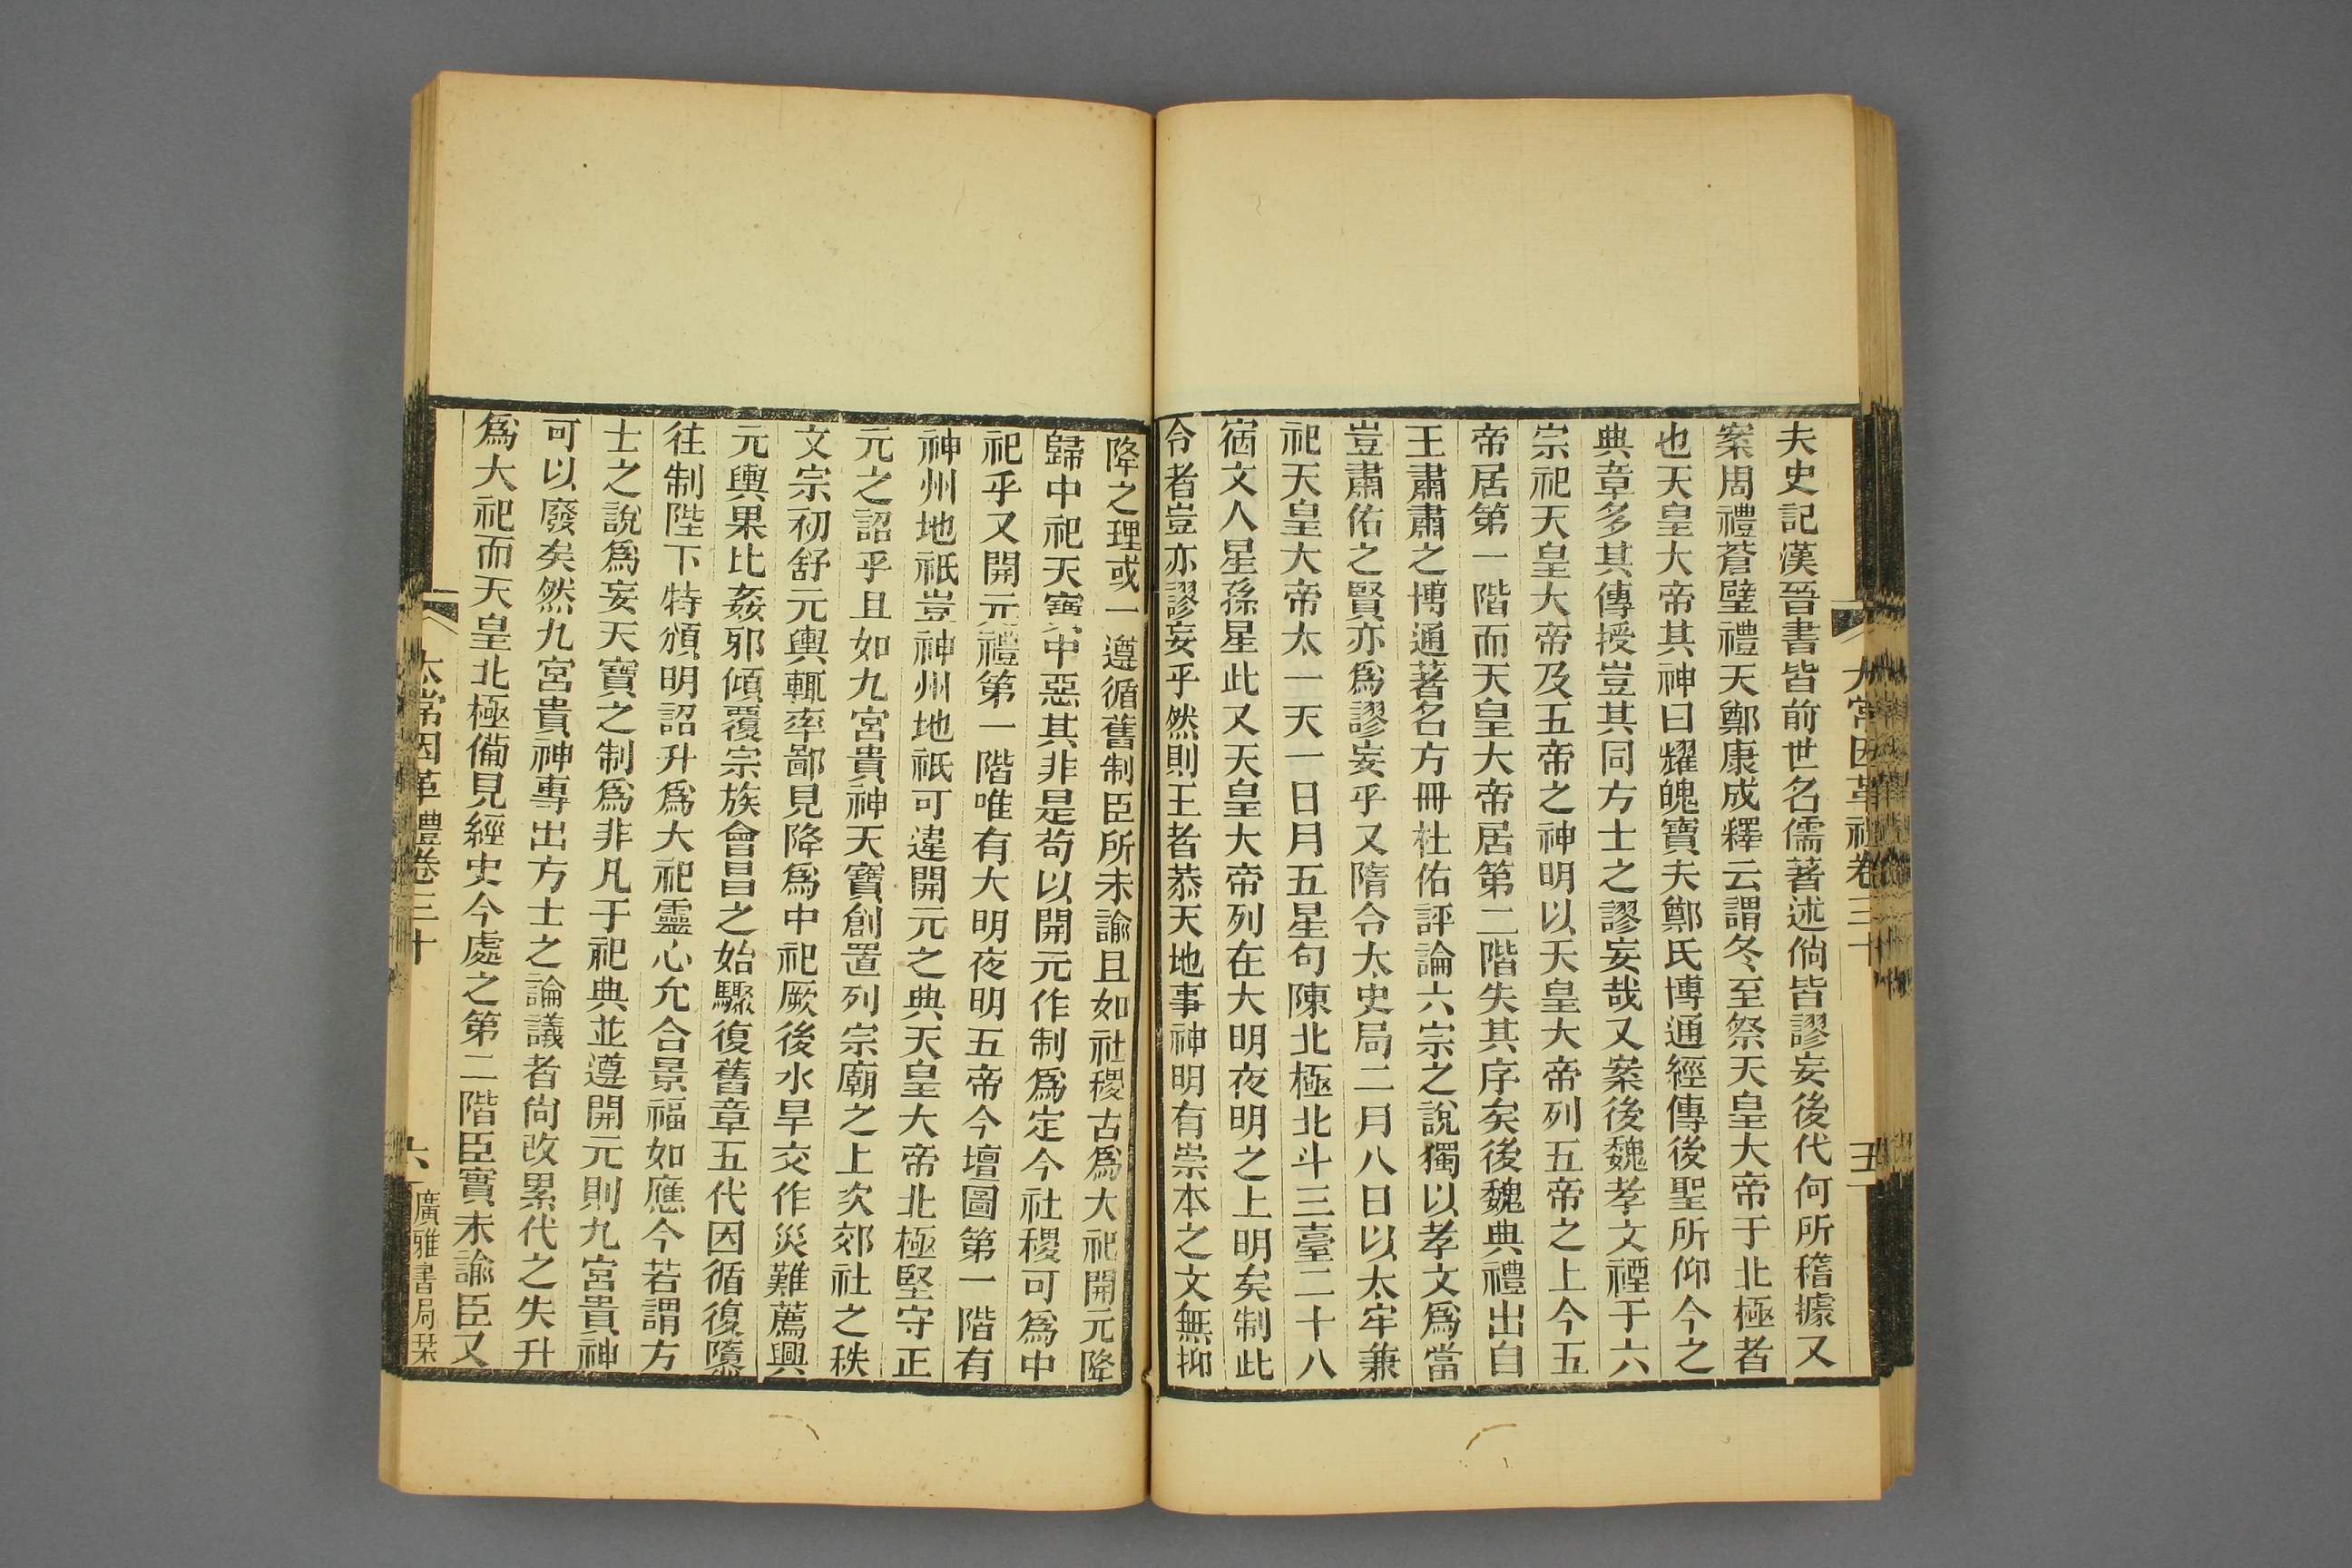 太常因革禮卷三十
五
夫史記漢晉書皆前世名儒著述倘皆謬妄後代何所稽據又
案周禮蒼璧禮天鄭康成釋云謂冬至祭天皇大帝于北極者
也天皇大帝其神曰耀魄寶夫鄭氏博通經傳後聖所仰今之
典章多其傳授豈其同方士之謬妄哉又案後魏孝文禋于六
宗祀天皇大帝及五帝之神明以天皇大帝列五帝之上今五
帝居第一階而天皇大帝居第二階失其序矣後魏典禮出自
王肅肅之博通著名方冊杜佑評論六宗之說獨以孝文爲當
豈肅佑之賢亦爲謬妄乎又隋令太史局二月八日以太牢兼
祀天皇大帝太一天一日月五星句陳北極北斗三臺二十八
宿文人星孫星此又天皇大帝列在大明夜明之上明矣制此
令者豈亦謬妄乎然則王者恭天地事神明有崇本之文無抑
降之理或一遵循舊制臣所未諭且如社稷古爲大祀開元降
歸中祀天寶中惡其非是苟以開元作制爲定今社稷可爲中
祀乎又開元禮第一階唯有大明夜明五帝今壇圖第一階有
神州地祇豈神州地祇可違開元之典天皇大帝北極堅守正
元之詔乎且如九宮貴神天寶創置列宗廟之上次郊社之秩
文宗初舒元輿輒率鄙見降爲中祀厥後水旱交作災難薦興
元輿果比姦邪傾覆宗族會昌之始驟復舊章五代因循復隳
往制陛下特頒明詔升爲大祀靈心允合景福如應今若謂方
士之說爲妄天寶之制爲非凡于祀典並遵開元則九宮貴神
可以廢矣然九宮貴神專出方士之論議者尙改累代之失升
爲大祀而天皇北極備見經史今處之第二階臣實未諭臣又
太常因革禮卷三十
六
廣雅書局栞